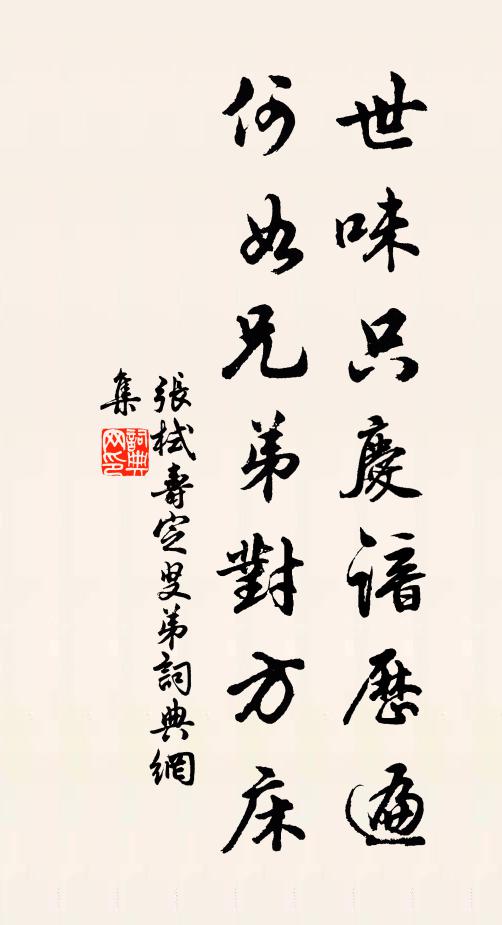 世味只慶諳歷遍
何如兄弟對方床
張栻壽定叟弟詞典網
集
詞典網印